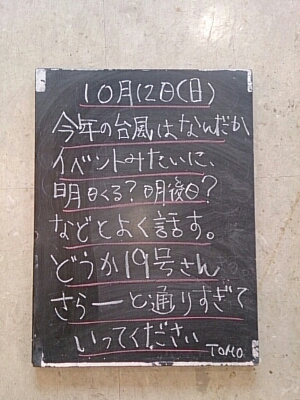 10月12日(日)
今年の台風はなんだか
イベントみたいに、
明日くる?明後日?
などとよく話す。
どうか19号さん
さらーと通りすぎて
いってください
TOMO.